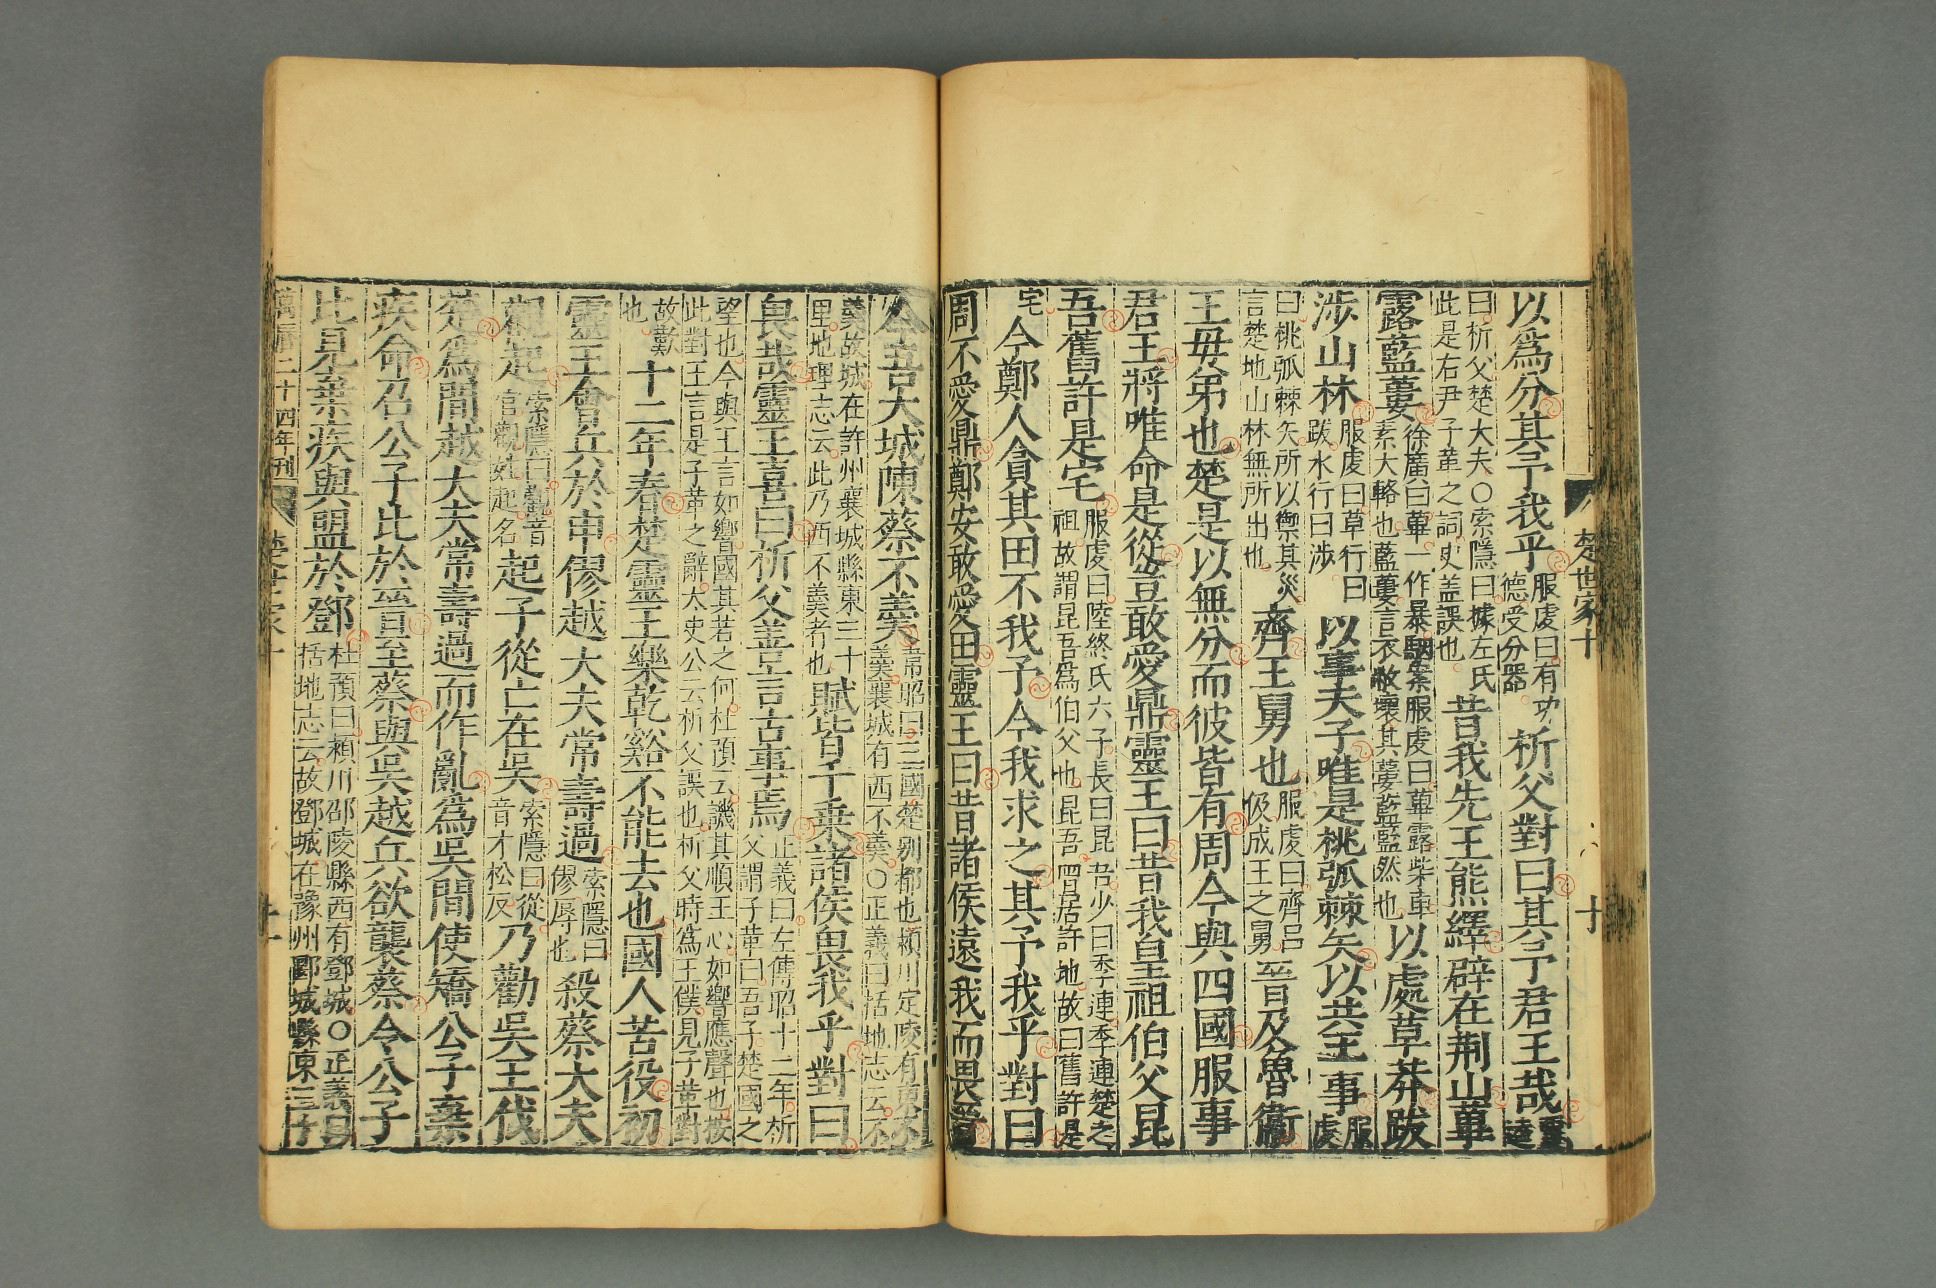 楚世家十
十
以爲分其予我乎服虔曰有功德受分器析父對曰其予君王哉賈逵
曰析父楚大夫○索隱曰據左氏此是右尹子革之詞史盖誤也昔我先王熊繹辟在荆山蓽
露藍蔞徐廣曰蓽一作暴駰案服虔曰蓽露柴車素大輅也藍蔞言衣敝壞其蔞藍藍然也以處草莽跋
涉山林服虔曰草行曰跋水行曰涉以事夫子唯是桃弧棘矢以共王事服虔
曰桃弧棘矢所以禦其災言楚地山林無所出也齊王舅也服虔曰齊吕伋成王之舅晉及魯衛
王毋弟也楚是以無分而彼皆有周今與四國服事
君王將唯命是從豈敢愛鼎靈王曰昔我皇祖伯父昆
吾舊許是宅服虔曰陸終氏六子長曰昆吾少曰季連季連楚之祖故謂昆吾爲伯父也昆吾曽居許地故曰舊許是
宅今鄭人貪其田不我予今我求之其予我乎對曰
周不愛鼎鄭安敢愛田靈王曰昔諸侯遠我而畏晉
今吾大城陳蔡不羹韋昭曰三國楚别都也頴川定陵有東不羹襄城有西不羹○正義曰括地志云不
羹故城在許州襄城縣東三十里地理志云此乃西不羹者也賦皆千乗諸侯畏我乎對曰
畏哉靈王喜曰析父善言古事焉正義曰左傳昭十二年析父謂子革曰吾子楚國之
望也今與王言如響國其若之何杜預云譏其順王心如響應聲也按此對王言是子革之辭太史公云析父誤也析父時爲王僕見子革對
故歎也十二年春楚靈王樂乾谿不能去也國人苦役初
靈王會兵於申僇越大夫常壽過索隱曰僇辱也殺蔡大夫
觀起索隱曰觀音官觀姓起名起子從亡在吳索隱曰從音才松反乃勸吳王伐
楚爲間越大夫常壽過而作亂爲吳間使矯公子棄
疾命召公子比於晉至蔡與吳越兵欲襲蔡令公子
比見棄疾與盟於鄧杜預曰頴川邵陵縣西有鄧城○正義曰括地志云故鄧城在豫州郾城縣東三十
萬曆二十四年刊
楚世家十